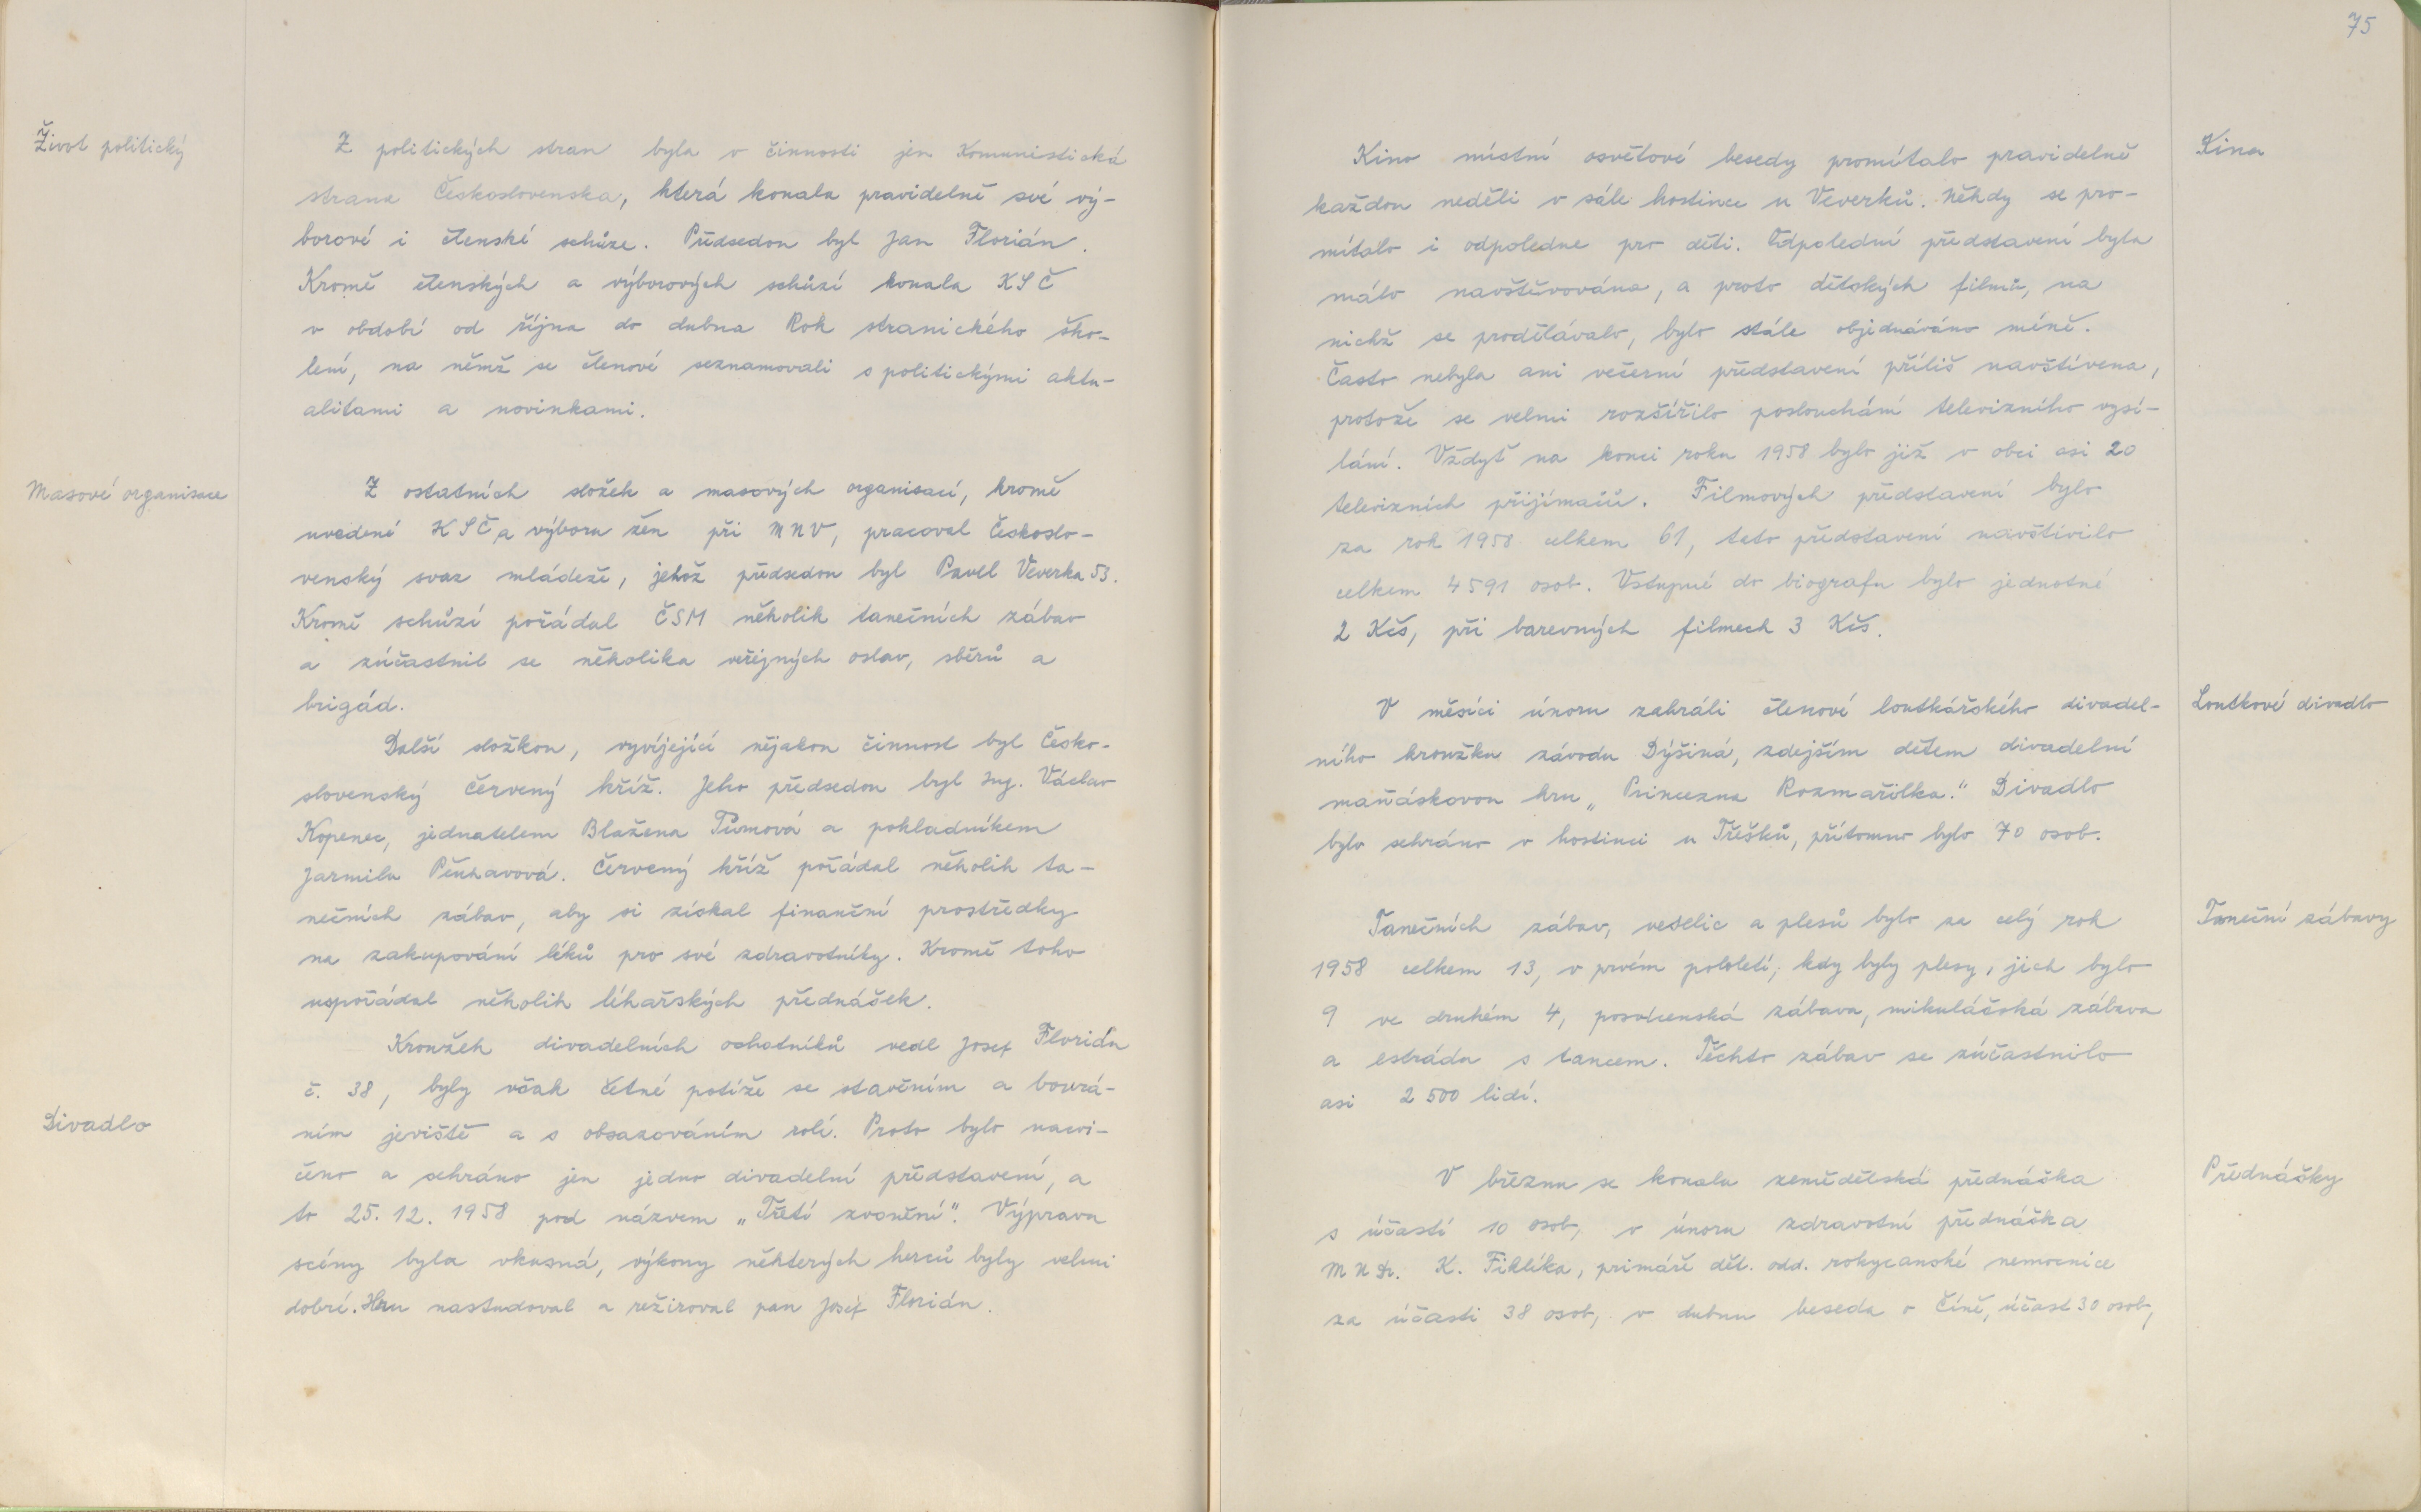 Život politický
Z politických stran byla v činnosti jen Komunistická
strana Československa, která konala pravidelně své vý-
borové i členské schůze. Předsedou byl Jan Florián.
Kromě členských a výborových schůzí konala KSČ
v období od října do dubna Rok stranického ško-
lení, na němž se členové seznamovali s politickými aktu-
alitami a novinkami.
Masové organisace
Z ostatních složek a masových organisací, kromě
uvedené KSČ a výboru žen při MNV, pracoval Českoslo-
venský svaz mládeže, jehož předsedou byl Pavel Veverka 53.
Kromě schůzí pořádal ČSM několik tanečních zábav
a zúčastnil se několika veřejných oslav, sběrů a
brigád.
Další složkou, vyvíjející nějakou činnost byl Česko-
slovenský červený kříž. Jeho předsedou byl Ing. Václav
Kopenec, jednatelem Blažena Tůmová a pokladníkem
Jarmila Pěnkavová. Červený kříž pořádal několik ta-
nečních zábav, aby si získal finanční prostředky
na zakupování léků pro své zdravotníky. Kromě toho
uspořádal několik lékařských přednášek.
Kroužek divadelních ochotníků vedl Josef Florián
č. 38, byly však četné potíže se stavěním a bourá-
ním jeviště a s obsazováním rolí. Proto bylo nacvi-
Divadlo
čeno a sehráno jen jedno divadelní představení, a
to 25. 12. 1958 pod názvem „Třetí zvonění". Výprava
scény byla vkusná, výkony některých herců byly velmi
dobré. Hru nastudoval a režíroval pan Josef Florián.
75
Kino místní osvětové besedy promítalo pravidelně
Kina
každou neděli v sále hostince u Veverků. Někdy se pro-
mítalo i odpoledne pro děti. Odpolední představení byla
málo navštěvována, a proto dětských filmů, na
nichž se prodělávalo, bylo stále objednáváno méně.
Často nebyla ani večerní představení příliš navštívena,
protože se velmi rozšířilo poslouchání televizního vysí-
lání. Vždyť na konci roku 1958 bylo již v obci asi 20
televizních přijímačů. Filmových představení bylo
za rok 1958 celkem 61, tato představení navštívilo
celkem 4591 osob. Vstupné do biografu bylo jednotné
2 Kčs, při barevných filmech 3 Kčs.
V měsíci únoru zahráli členové loutkářského divadel-
Loutkové divadlo
ního kroužku závodu Dýšiná, zdejším dětem divadelní
maňáskovou hru „Princezna Rozmařilka." Divadlo
bylo sehráno v hostinci u Třešků, přítomno bylo 70 osob.
Tanečních zábav, veselic a plesů bylo za celý rok
Taneční zábavy
1958 celkem 13, v prvém pololetí, kdy byly plesy, jich bylo
9 ve druhém 4, posvícenská zábava, mikulášská zábava
a estráda s tancem. Těchto zábav se zúčastnilo
asi 2 500 lidí.
V březnu se konala zemědělská přednáška
Přednášky
s účastí 10 osob, v únoru zdravotní přednáška
MUDr. K. Fiklíka, primáře dět. odd. rokycanské nemocnice
za účasti 38 osob, v dubnu beseda o Číně, účast 30 osob,